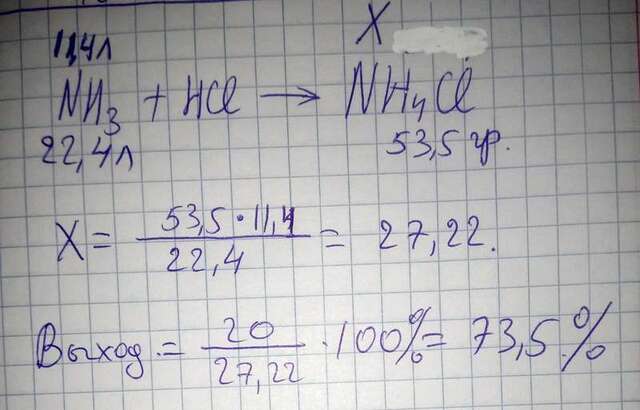 11,4л X
NH₃ + HCl → NH₄Cl
22,4л 53,5 гр.
X = 53,5 · 11,4 / 22,4 = 27,22.
Выход = 20 / 27,22 · 100% = 73,5%